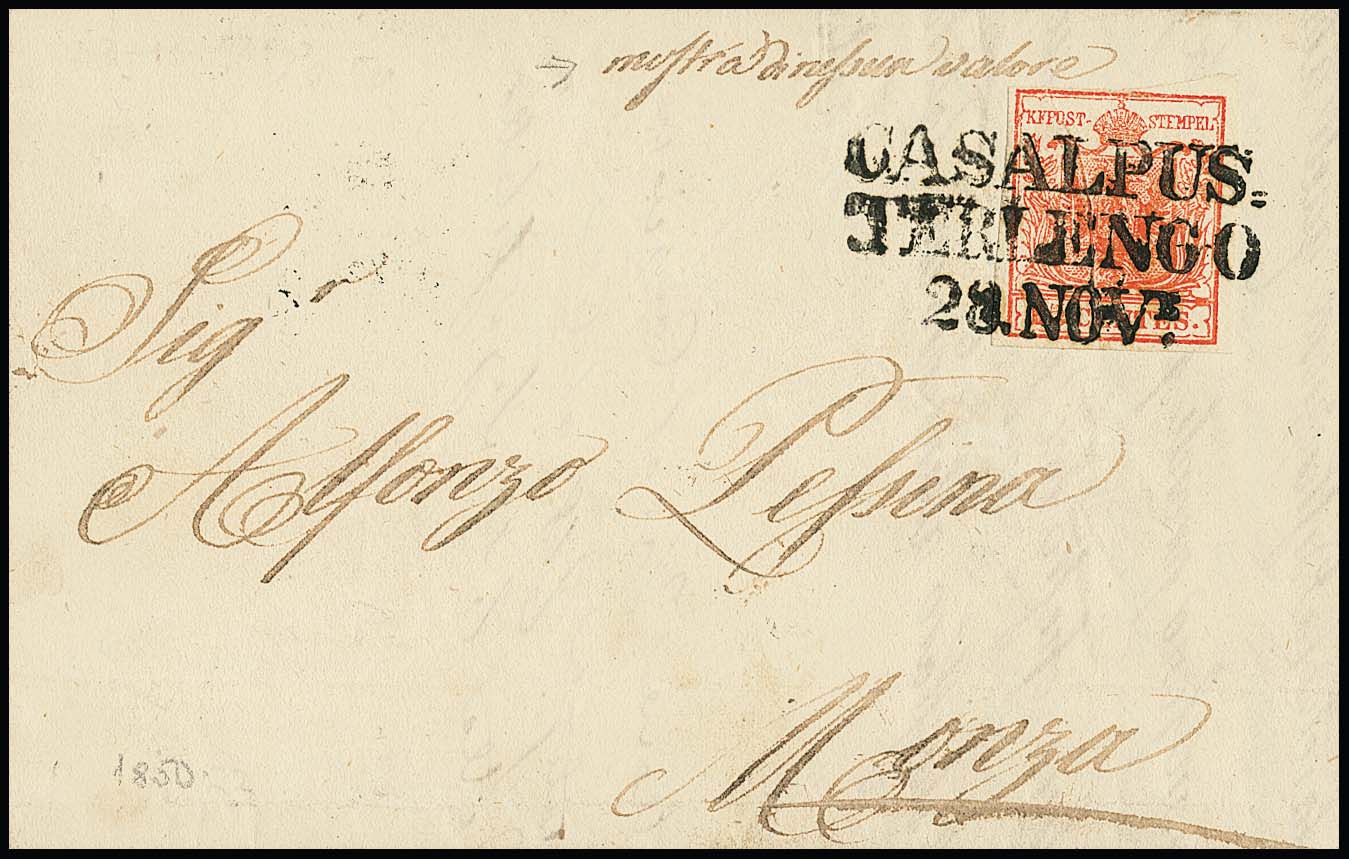 mostra di nessun valore
KKPOST-STEMPEL
CASALPUS=
TERLENGO
28. NOVE.
CENTES.
Sigr
Alfonzo Pessina
Monza
1850